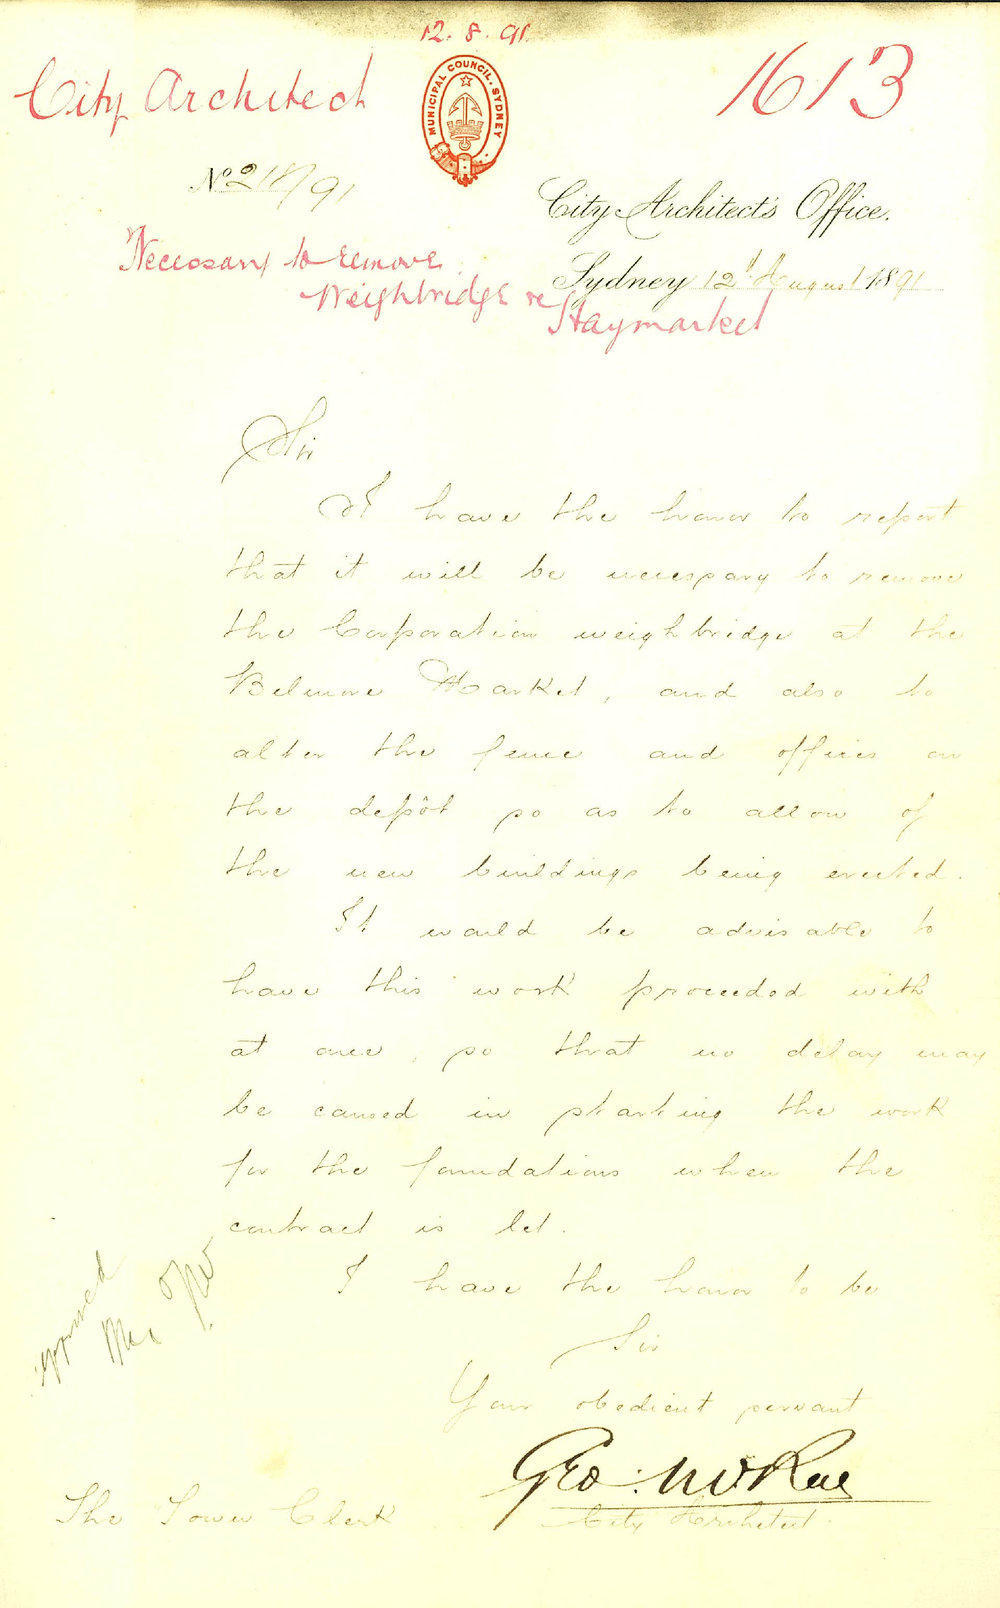 12. 8. 91.
City Architect
1613
MUNICIPAL COUNCIL. SYDNEY
No 218/91
City Architect's Office.
Necessary to remove
Sydney 12th August 1891
Weighbridge re
Haymarket
Sir
I have the honor to report
that it will be necessary to remove
the Corporation weighbridge at the
Belmore Market, and also to
alter the fence and offices on
the depôt so as to allow of
the new buildings being erected.
It would be advisable to
have this work proceeded with
at once, so that no delay may
be caused in starting the work
for the foundations when the
contract is let.
I have the honor to be
Sir
Your obedient servant
Geo: McRae
City Architect.
The Town Clerk
approved